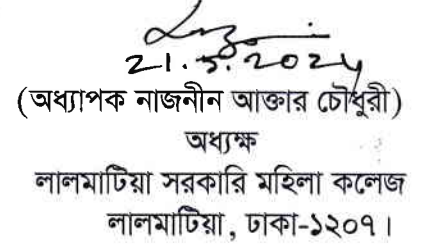 21.5.2024
(অধ্যাপক নাজনীন আক্তার চৌধুরী)
অধ্যক্ষ
লালমাটিয়া সরকারি মহিলা কলেজ
লালমাটিয়া, ঢাকা-১২০৭।